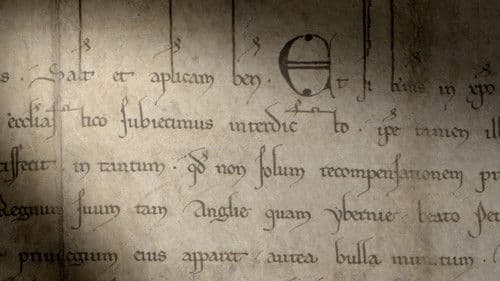 s. Salt et aplicam ben. Et eius in xpo
ecclias tico subiecimus interdic to. ipe tamen ill
tisfecit in tantum. qd non solum recompensationem pr
Regnum suum tam Anglie quam ybernie beato Pet
privilegium eius apparet aurea bulla munitum.